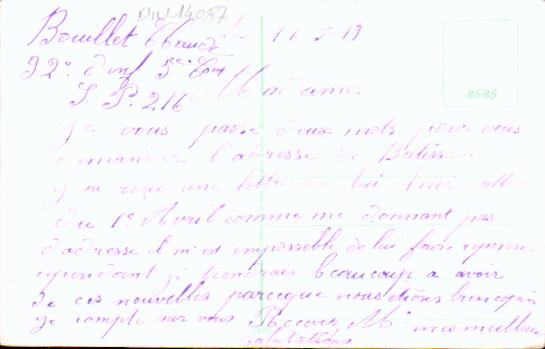 DIV 14087
Bouillet le 11-5-19
92e d'inf 5e Com
S. P. 216 Madame
8585
je vous passe deux mots pour vous
demander l'adresse de Batisse.
j'ai reçu une lettre de lui
du 1er Avril comme me donnant pas
d'adresse il m'est impossible de lui faire reponse
cependant je tiendrais beaucoup a avoir
de ces nouvelles parceque nous étions bien copin
je compte sur vous Recevez Me mes meilleure
salutations